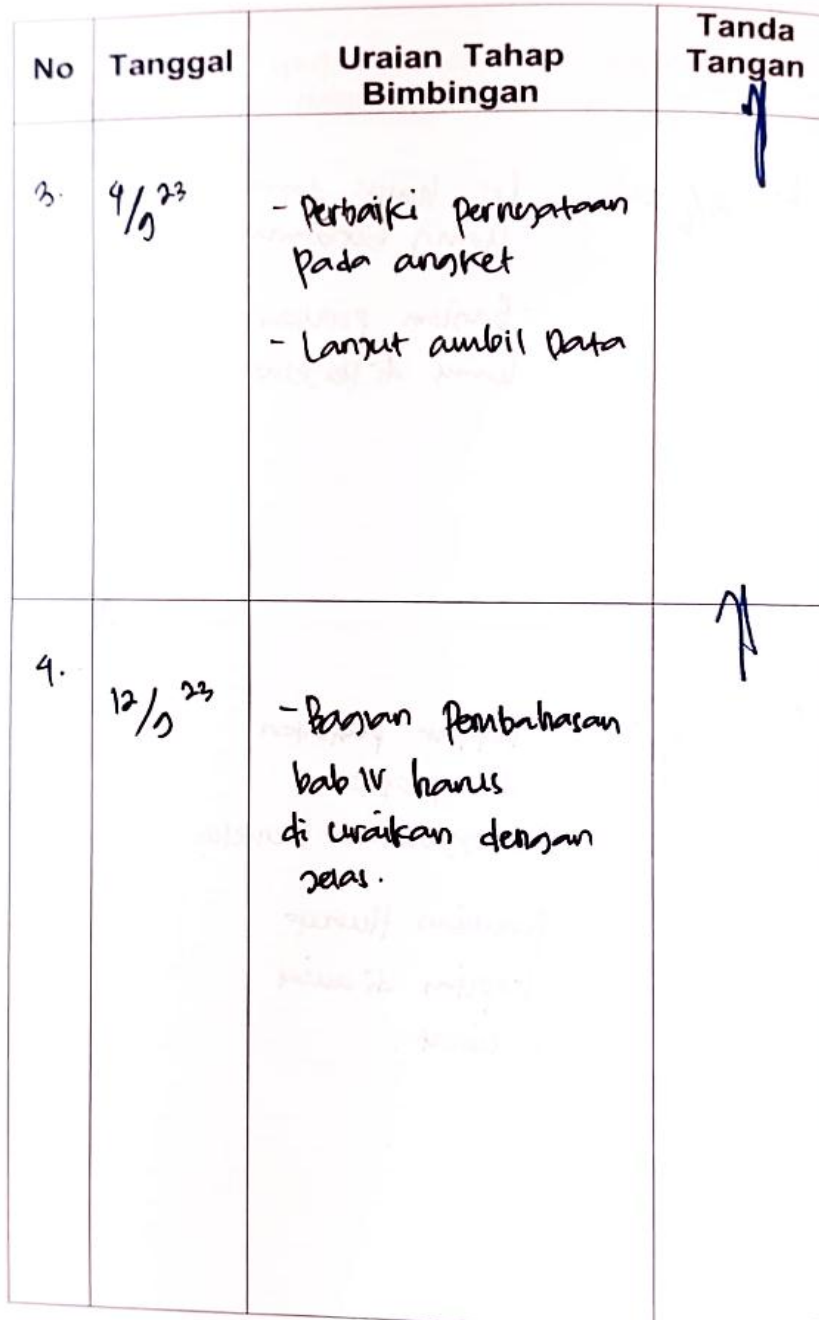 No Tanggal Uraian Tahap Bimbingan Tanda Tangan
3. 4/9 23 - Perbaiki pernyataan
pada angket
- Lanjut ambil Data
4. 12/9 23 - Bagian Pembahasan
bab IV harus
di uraikan dengan
jelas.